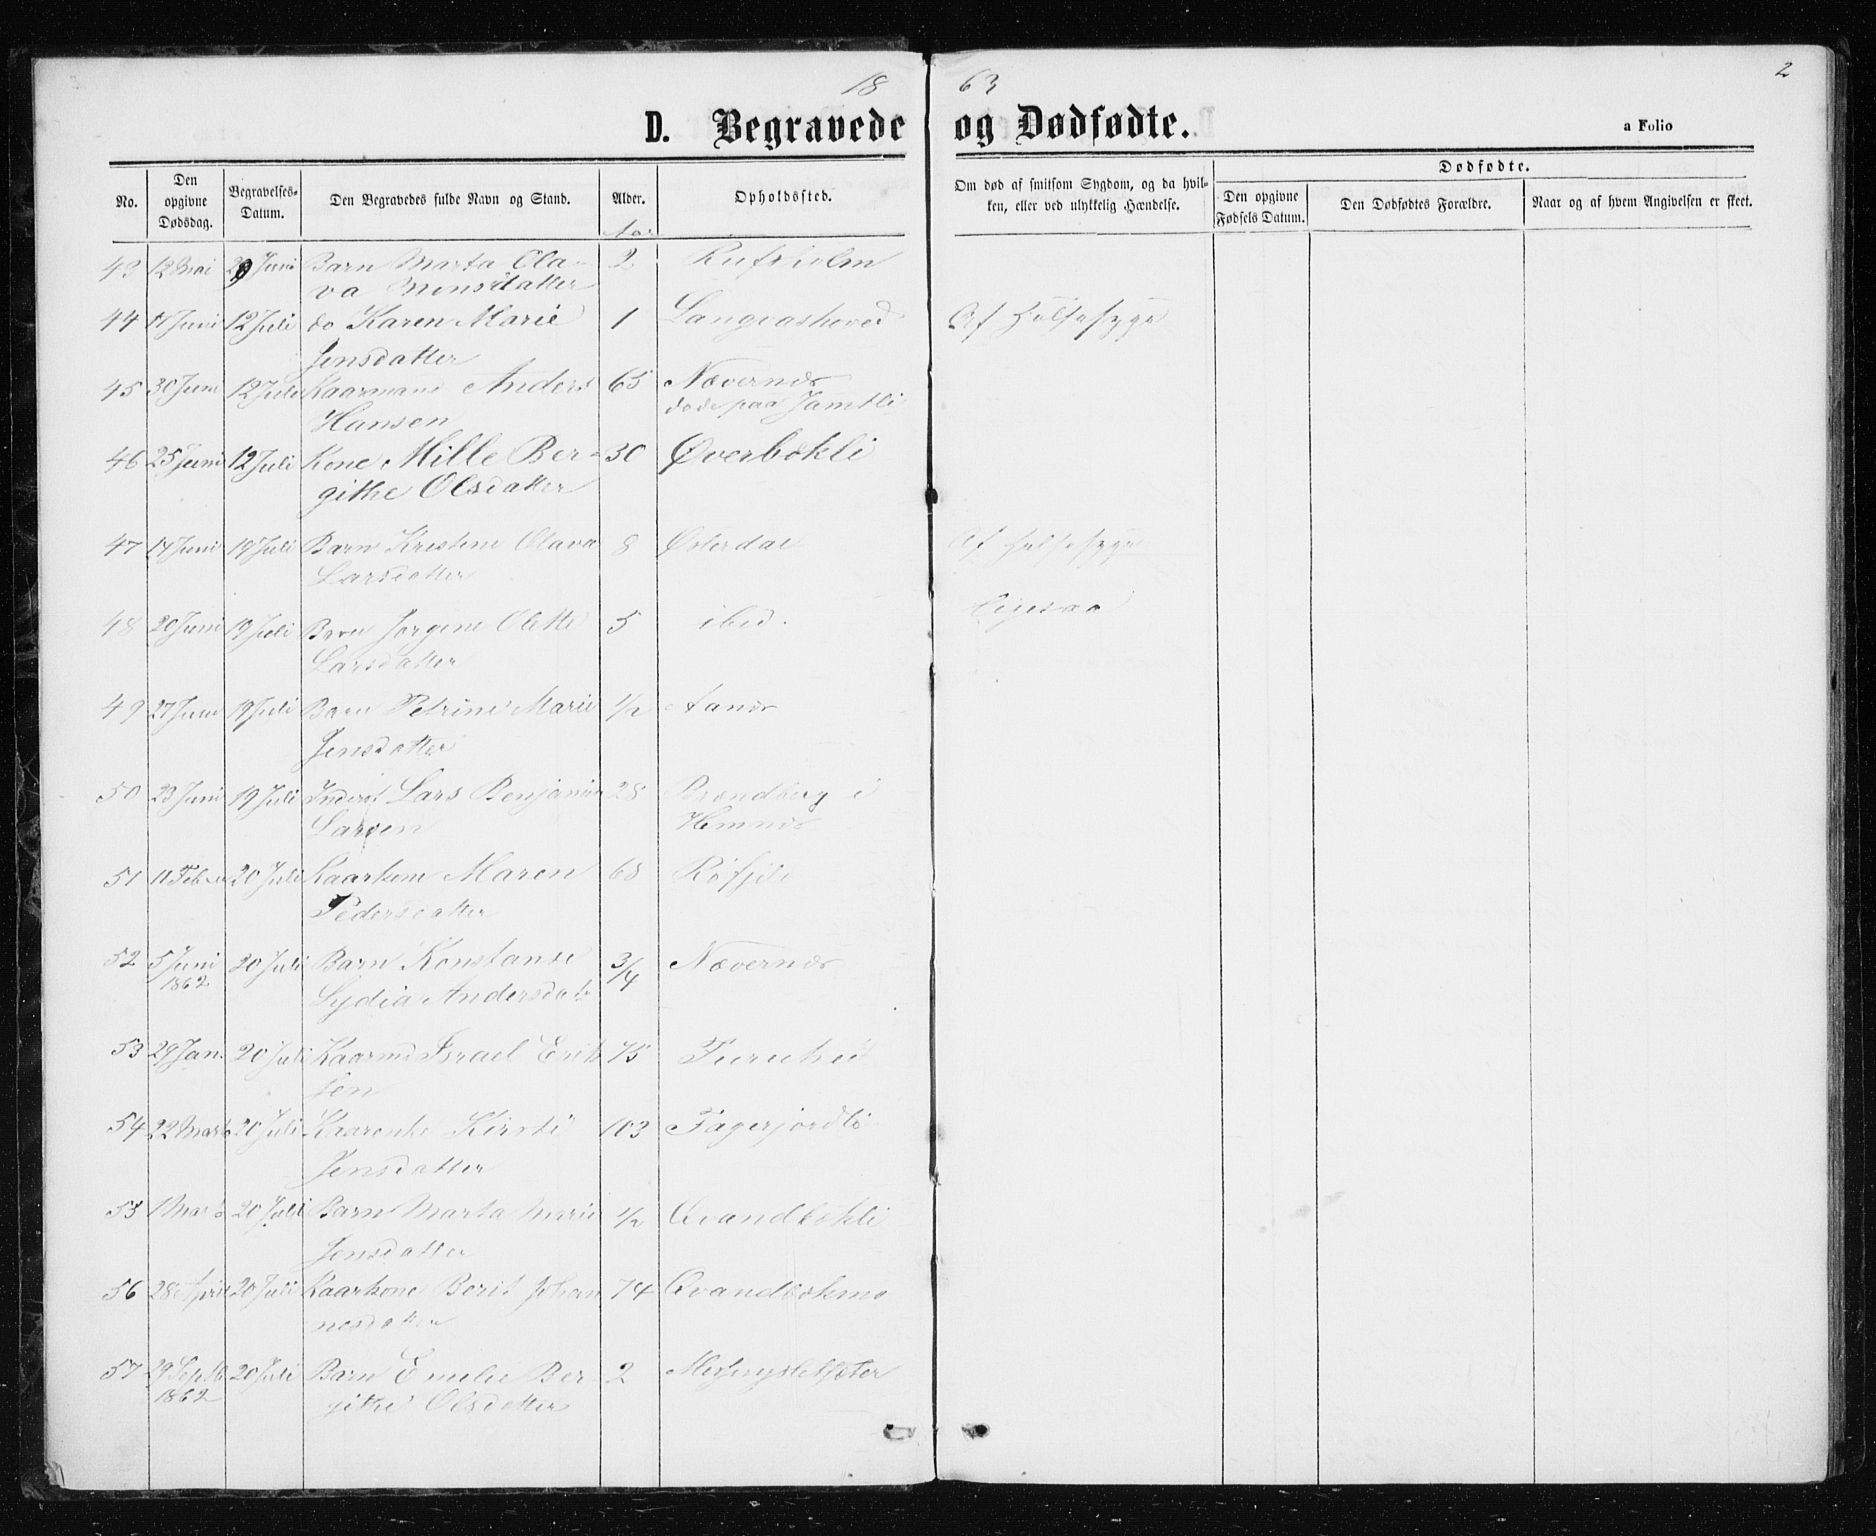 18 63 2
D. Begravede og Dødfødte. a Folio
No. Den opgivne Dødsdag. Begravelses-Datum. Den Begravedes fulde Navn og Stand. Alder. Opholdssted. Om død af smitsom Sygdom, og da hvil-ken, eller ved ulykkelig Hændelse. Dødfødte.
Den opgivne Fødsels Datum. Den Dødfødtes Forældre. Naar og af hvem Angivelsen er skeet.
Aar
43 12 Mai Juni Barn Marta Ola- 2
va Monsdatter
44 11 Juni 12 Juli do Karen Marie 1 Af Halsesyge
Jensdatter
45 30 Juni 12 Juli Kaarmand Anders 65 Nævernæs
Hansen døde paa Jamtli
46 25 Juni 12 Juli Kone Mille Ber- 30 Øverbækli
githe Olsdatter
47 14 Juni 19 Juli Barn Kristine Olava 8 Østerdal Af Halsesyge
Larsdatter
48 20 Juni 19 Juli Barn Jørgine Olette 5 ibid. Ligesaa
Larsdatter
49 27 Juni 19 Juli Barn Petrine Marie 1/2 Aanæs
Jensdatter
50 23 Juni 19 Juli Inderst Lars Benjamin 28 Brændberg i
Larsen Hemnæs
51 11 Febr 20 Juli Kaarkone Maren 68 Røfjeld
Pedersdatter
52 5 Juni 20 Juli Barn Konstanse 3/4 Nævernæs
1862 Lydia Andersdatr
53 29 Jan. 20 Juli Kaarmd Israel Erik 75 Furuhei
sen
54 22 Marts 20 Juli Kaarenke Kirsti 103 Fagerjordli
Jensdatter
55 1 Marts 20 Juli Barn Marta Marie 1/2 Qvandbækli
Jensdatter
56 28 April 20 Juli Kaarkone Berit Johan 74 Qvandbækmo
nesdatter
57 29 Septb 20 Juli Barn Emelie Ber 2
1862 githe Olsdatter